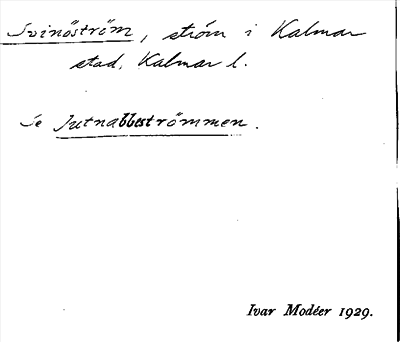 Svinöström, ström i Kalmar
stad, Kalmar l.
Se Jutnabbeströmmen.
Ivar Modéer 1929.